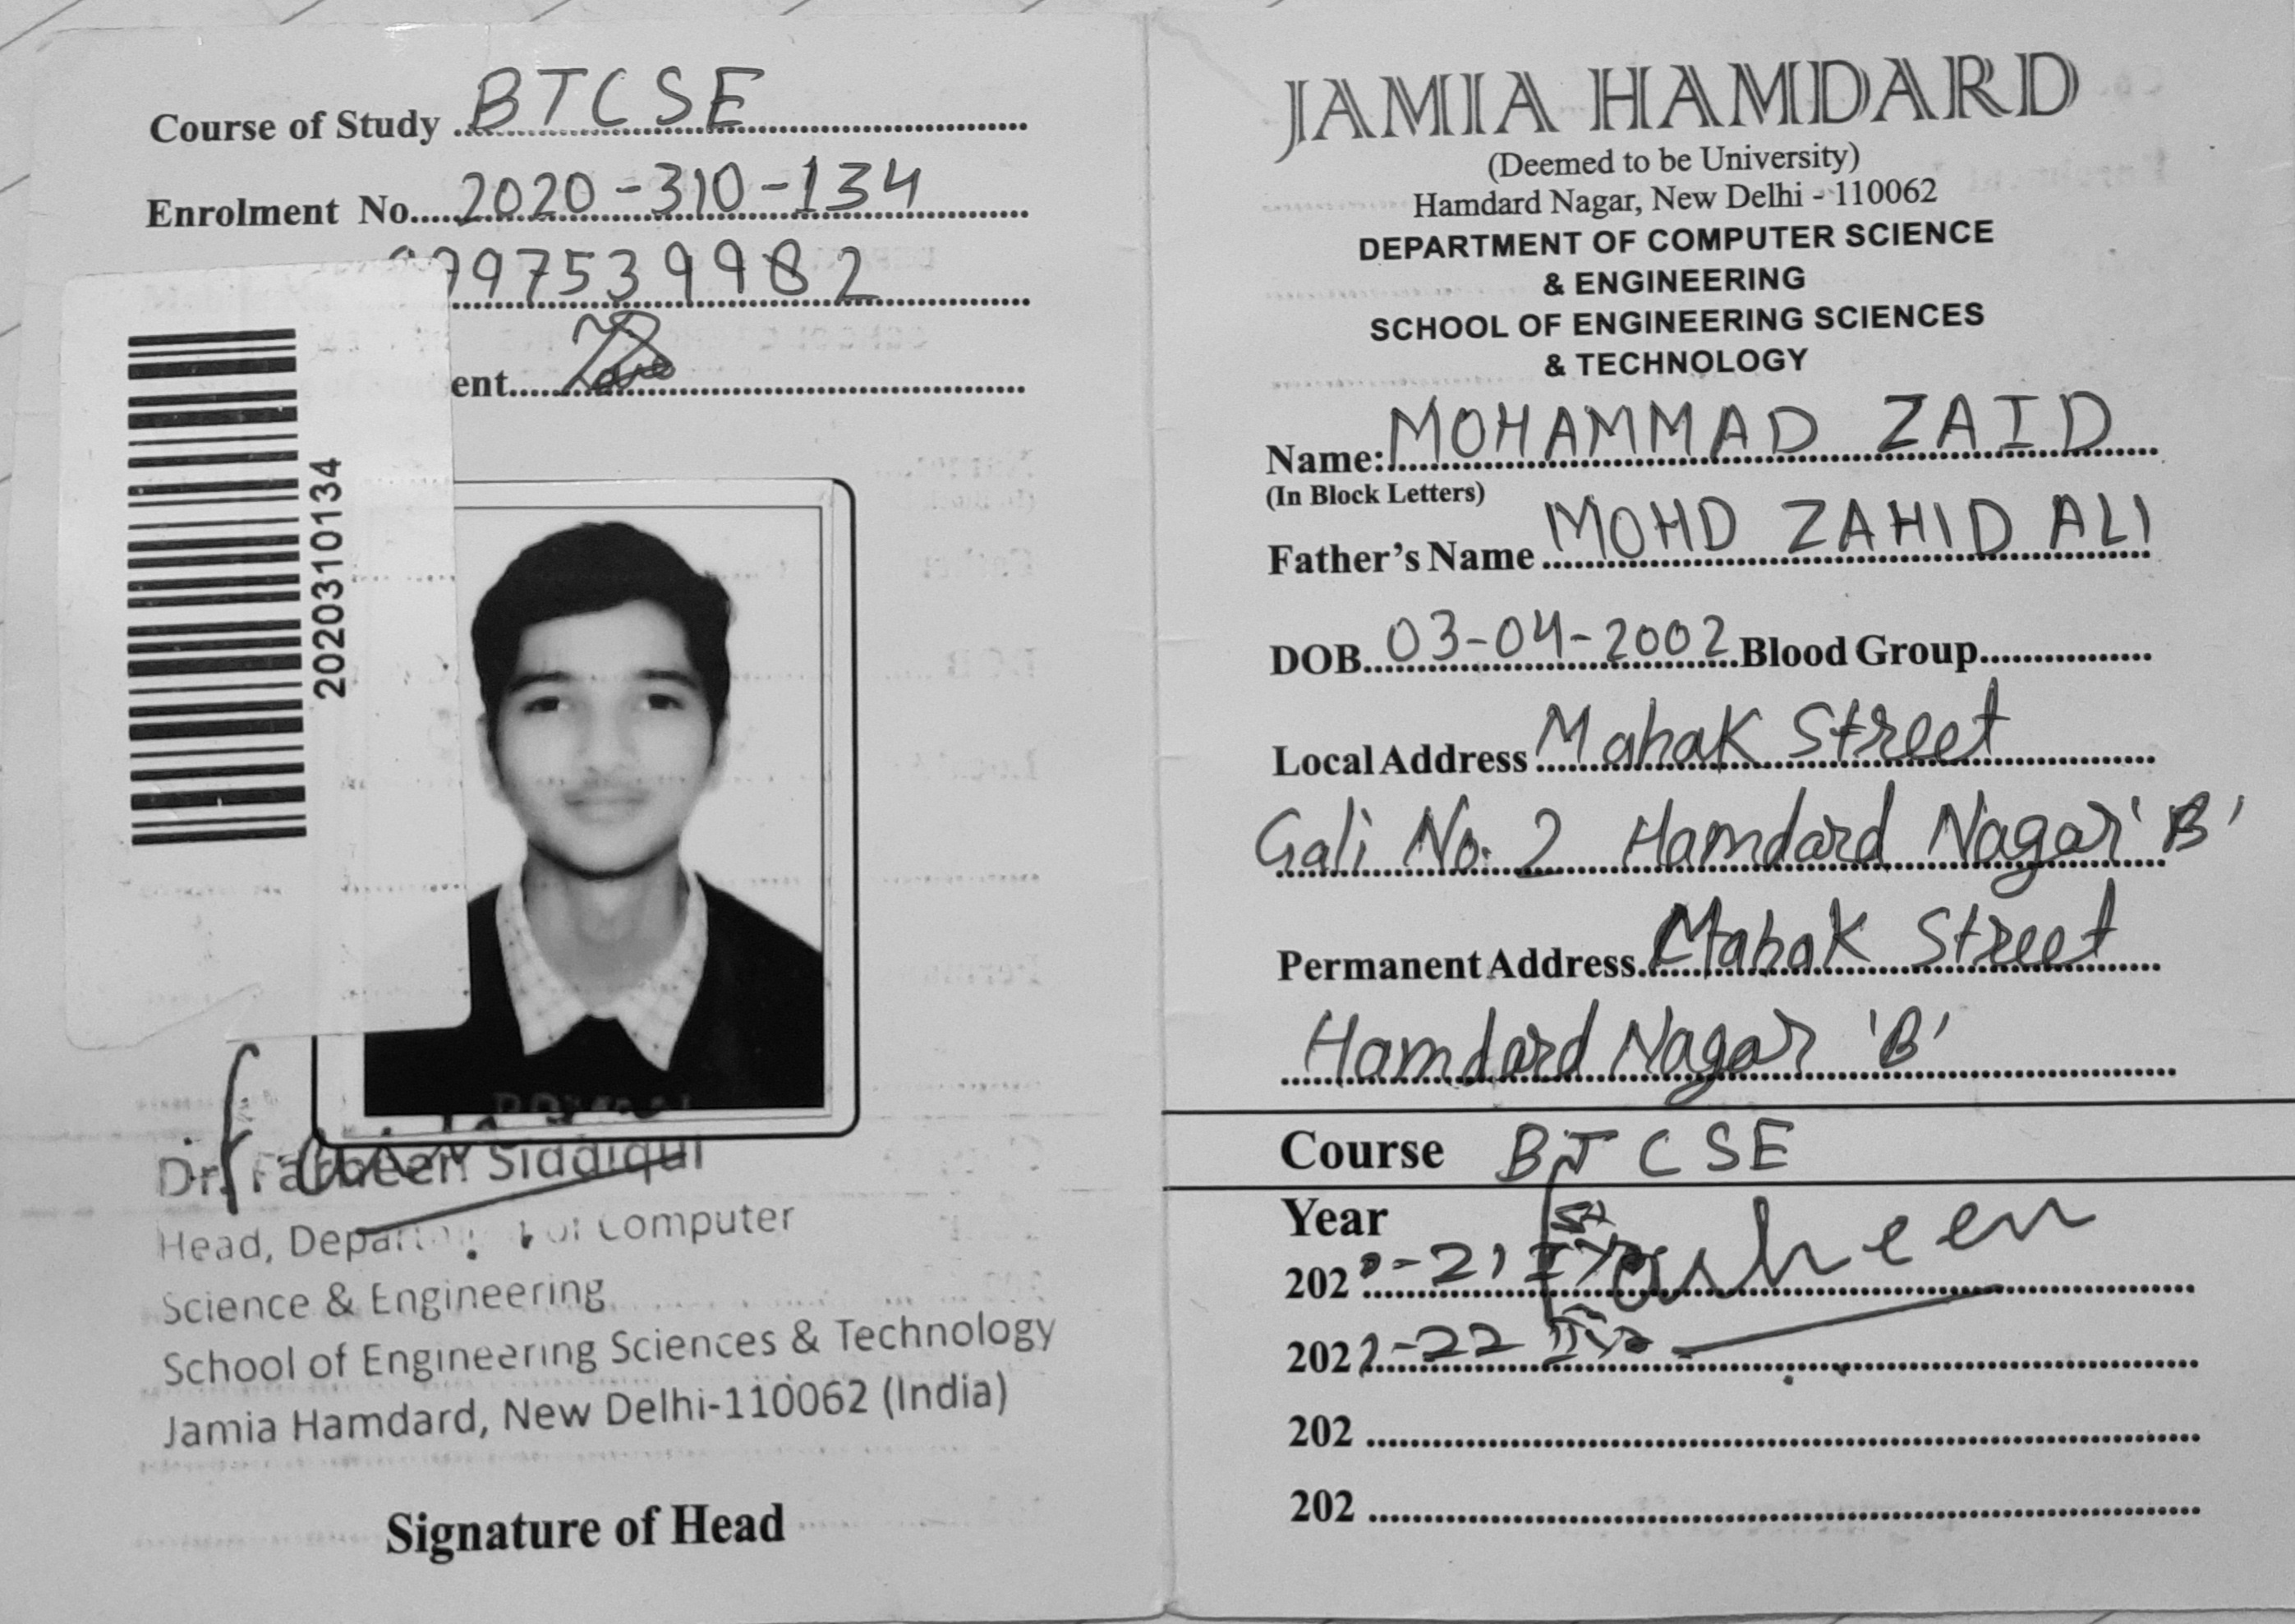 Course of Study BTCSE
Enrolment No. 2020-310-134
997539982
ent
2020310134
Dr. Farheen Siddiqui
Head, Department of Computer
Science & Engineering
School of Engineering Sciences & Technology
Jamia Hamdard, New Delhi-110062 (India)
Signature of Head
JAMIA HAMDARD
(Deemed to be University)
Hamdard Nagar, New Delhi - 110062
DEPARTMENT OF COMPUTER SCIENCE
& ENGINEERING
SCHOOL OF ENGINEERING SCIENCES
& TECHNOLOGY
Name: MOHAMMAD ZAID
(In Block Letters)
Father's Name MOHD ZAHID ALI
DOB 03-04-2002 Blood Group
Local Address Mahak Street
Gali No. 2 Hamdard Nagar 'B'
Permanent Address Mahak Street
Hamdard Nagar 'B'
Course BTCSE
Year
2020-21 Farheen
2021-22
202
202